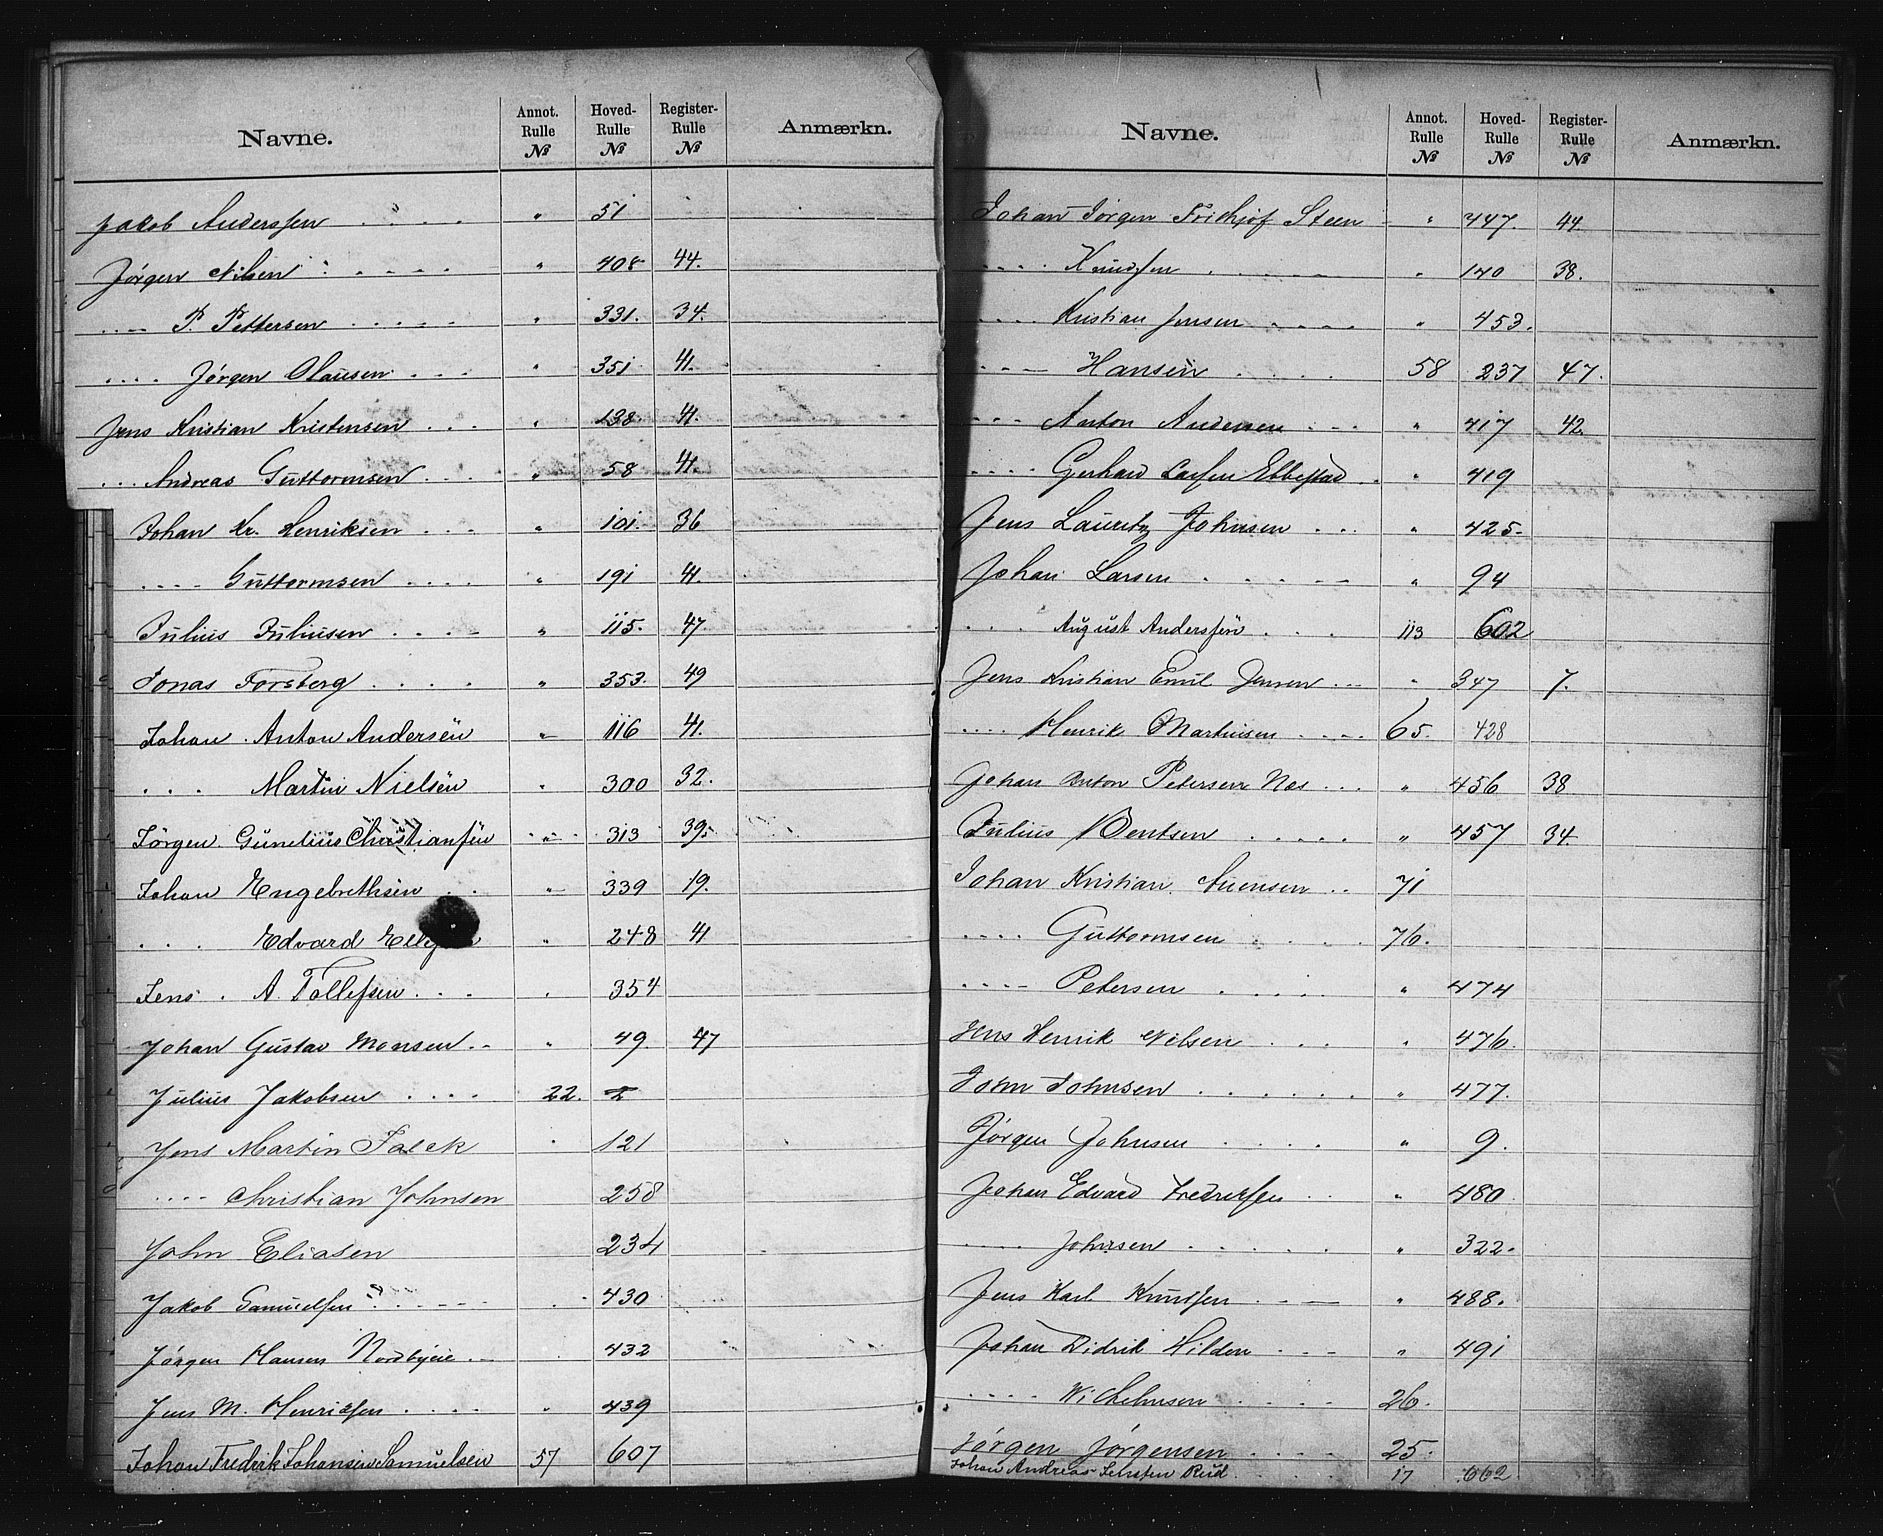 Navne. Annot. Rulle № Hoved-Rulle № Register-Rulle № Anmærkn.
Jakob Anderssen . . . . " 51
Jørgen Nilsen . . . . . " 408 44.
.... P. Pettersen . . . . . " 331. 34.
.... Jørgen Olausen . . . " 351 41.
Jens Kristian Kristensen . . . " 138. 41.
... Andreas Guttormsen . . . . " 58 41.
Johan Kr. Henriksen . . . " 101. 36
.... Guttormsen . . . . " 191 41.
Julius Juliusen . . . . " 115. 47.
Jonas Forsberg . . . . " 353. 49
Johan . Anton Andersen " 116 41.
. . . Martin Nielsen " 300 32.
Jørgen Gunelius Christianssen " 313 39.
Johan Engebrethsen . . " 339 19.
. . . Edvard " 248 41
Jens . A. Tollefsen . . . " 354
Johan Gustav Monsen . . " 49. 47
Julius Jakobsen . . . . 22. 2
Jens Martin Falck " 121
.... Christian Johnsen 258
John Eliasen 234
Jakob Samuelsen . . . . . 430
Jørgen Hansen Nordbyeie . . 432
Jens M. Henriksen . . . . " 439
Johan Fredrik Johansen Samuelsen 57 607
Navne. Annot. Rulle № Hoved-Rulle № Register-Rulle № Anmærkn.
Johan Jørgen Fridthjof Steen " 447. 44.
.... Knudsen . . . . . " 140 38.
.... Kristian Jensen . . . . " 453.
.... Hansen . . . . 58 237 47.
... Anton Andersen . . . " 417 42
.... Gerhard Larsen Ebbestad . " 419
Jens Lauritz Johnsen . . . " 425.
Johan Larsen . . . . . " 94
.... August Anderssen . . . 113 602
Jens Kristian Emil Jensen ... " 347 7.
.... Henrik Martinsen . . . . 65. 428
Johan Anton Petersen Næs ... " 456 38
Julius Bentsen . . . . . " 457 34.
Johan Kristian Svensen . . 71
.... Guttormsen . . . . 76.
.... Petersen . . . . " 474
Jens Henrik Nilsen . . . " 476.
John Johnsen . . . . . . " 477.
Jørgen Johnsen . . . . " 9.
Johan Edvard Fredriksen . . " 480.
.... Johnsen . . . . . " 322.
Jens Karl Knudsen . . . " 488.
Johan Didrik Hilden . . . " 491
.... Wilhelmsen . . . . 26.
Jørgen Jørgensen . . . . 25.
Johan Andreas Rud . . . 17 662